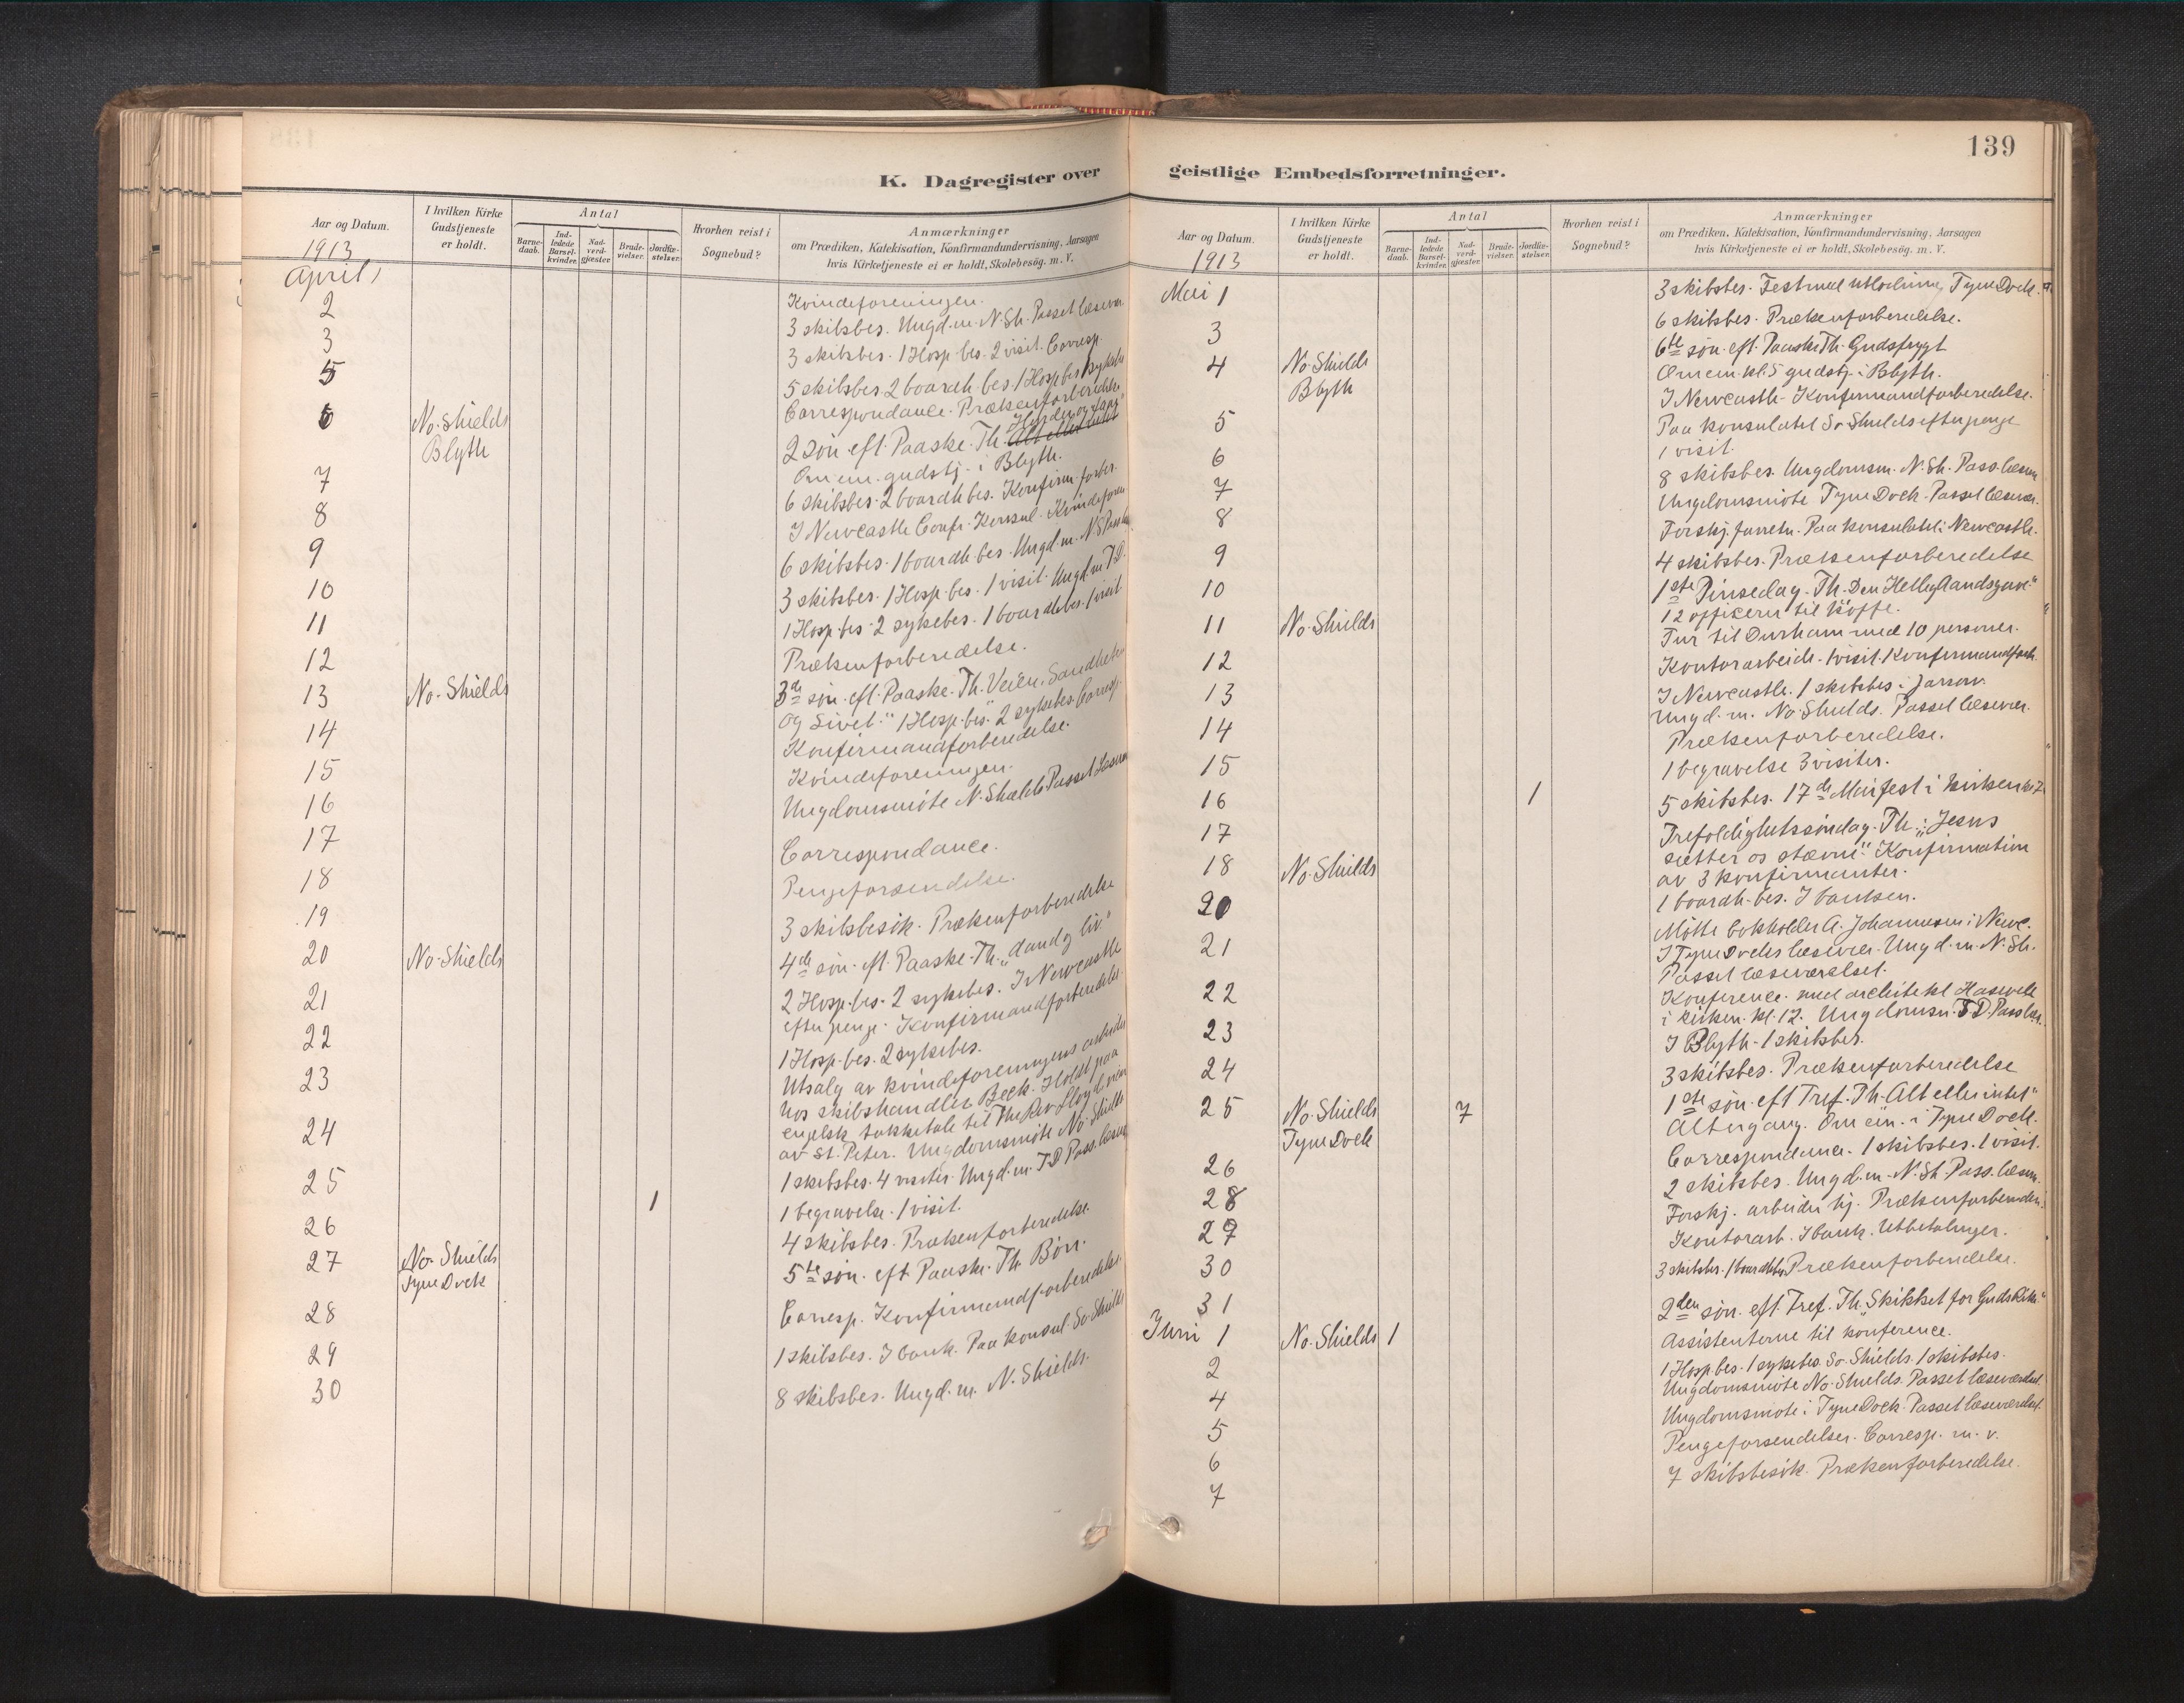 K. Dagregister over
Aar og Datum.
I hvilken Kirke Gudstjeneste er holdt.
Antal
Barne-daab.
Ind-ledede Barsel-kvinder.
Nad-verd-gjæster.
Brude-vielser.
Jordfæ-stelser.
Hvorhen reist i Sognebud?
Anmærkninger
om Prædiken, Katekisation, Konfirmandundervisning, Aarsagen
hvis Kirketjeneste ei er holdt, Skolebesøg. m. V.
1913
April 1
Kvindeforeningen.
2
3 skibsbes. Ungd.m. N.Sh. Passet læsevær.
3
3 skibsbes. 1 Hosp. bes. 2 visit. Corresp.
5
5 skibsbes. 2 boardh. bes. 1 Hosp bes. 1 sykebes
Correspondance. Prækenforberedelse
6 No. Shields
Hyrden og
2 søn. eft. Paaske. Th. Alt eller intet
Blyth
Om em. gudstj. i Blyth.
7
6 skibsbes. 2 boardh bes. Konfirm. forber.
8
I Newcastle Conf. Konsul. Kvindeforen
9
6 skibsbes. 1 boardh. bes. Ungd. m. N.S
10
3 skibsbes. 1 Hosp. bes. 1 visit. Ungd. m. T.D.
11
1 Hosp. bes. 2 sykebes. 1 boardh bes. 1 visit.
12
Prækenforberedelse.
13 No. Shields
3de søn. eft. Paaske. Th. Veien, Sandheten
og Livet." 1 Hosp. bes. 2 sykebes. Corresp.
14
Konfirmandforberedelse.
15
Kvindeforeningen.
16
Ungdomsmöte N. Shields Passet Læsevær
17
Correspondance.
18
Pengeforsendelse.
19
3 skibsbesök. Prækenforberedelse
20 No. Shields
4de søn. eft. Paaske. Th. "Aand og liv."
21
2 Hosp. bes. 2 sykebes. I Newcastle
efter penge. Konfirmandforberedelse.
22
1 Hosp. bes. 2 sykebes.
23
Utsalg av kvindeforeningens arbeider
hos skibshandler Beck. Holdt paa
engelsk takketale til The Rev. Lloyd
av St. Peter. Ungdomsmöte No. Shields
24
1 skibsbes. 4 visiter. Ungd. m. T.D Pass. læsevær
25 1
1 begravelse. 1 visit.
26
4 skibsbes. Prækenforberedelse.
27 No. Shields
5te søn. eft. Paaske. Th. Bön.
Tyne Dock
28
Corresp. Konfirmandforberedelse.
29
1 skibsbes. I bank. Paa konsul. So. Shields
30
8 skibsbes. Ungd. m. N. Shields.
geistlige Embedsforretninger.
139
Aar og Datum.
I hvilken Kirke Gudstjeneste er holdt.
Antal
Barne-daab.
Ind-ledede Barsel-kvinder.
Nad-verd-gjæster.
Brude-vielser.
Jordfæ-stelser.
Hvorhen reist i Sognebud?
Anmærkninger
om Prædiken, Katekisation, Konfirmandundervisning, Aarsagen
hvis Kirketjeneste ei er holdt, Skolebesøg. m. V.
1913
Mai 1
3 skibsbes. Festmed utlodning Tyne Dock.
3
6 skibsbes. Prækenforberedelse.
4 No. Shields
6te søn. eft. Paaske Th. Gudsfrygt
Blyth
Om em. kl. 5 gudstj. i Blyth.
5
I Newcastle. Konfirmandforberedelse.
6
Paa konsulatet So. Shields efter penge
1 visit.
7
8 skibsbes. Ungdomsm. N. Sh. Pass. læsevær
8
Ungdomsmöte Tyne Dock. Passet læsevær.
9
Forskj. forretn. Paa konsulatet i Newcastle.
10
4 skibsbes. Prækenforberedelse
11 No. Shields
1ste Pinsedag. Th. Den Hellig Aands gave."
12 officerer til kaffe.
12
Tur til Durham med 10 personer.
13
Kontorarbeide. 1 visit. Konfirmandforb.
14
I Newcastle. 1 skibsbes. i Jarrow.
Ungd. m. No. Shields. Passet læsevær.
15
Prækenforberedelse.
16 1
1 begravelse 3 visiter.
17
5 skibsbes. 17de Mai fest i kirken kl 7
18 No. Shields
Trefoldighetssöndag. Th.: "Jesus
sætter os stævne." Konfirmation
av 3 konfirmanter.
20
1 boardh. bes. I banken.
21
Mötte bokholder A. Johannesen i Newc.
I Tyne Docks læsevær. Ungd. m. N. Sh.
Passet læseværelset.
22
Konference med architekt Haswell
i kirken kl. 12. Ungdomsm. T.D. Pass læs.
23
I Blyth. 1 skibsbes.
24
3 skibsbes. Prækenforberedelse
25 No. Shields 7
1ste søn. eft Tref. Th. Alt eller intet"
Tyne Dock
Altergang. Om em. i Tyne Dock.
26
Correspondance. 1 skibsbes. 1 visit.
28
2 skibsbes. Ungd. m. N. Sh. Pass. læsevær.
29
Forskj. arbeide hj. Prækenforbered.
30
Kontorarb. I bank. Utbetalinger.
31
3 skibsbes. 1 boardhbes. Prækenforberedelse.
Juni 1 No. Shields 1
2den søn. eft. Tref. Th. "Skikket for Guds Rike."
2
Assistenterne til konference.
4
1 Hosp. bes. 1 sykebes. So. Shields. 1 skibsbes.
Ungdomsmöte No. Shields. Passet læseværelset
5
Ungdomsmöte i Tyne Dock. Passet læseværelset.
6
Pengeforsendelser. Corresp. m. v.
7
7 skibsbesök. Prækenforberedelse.